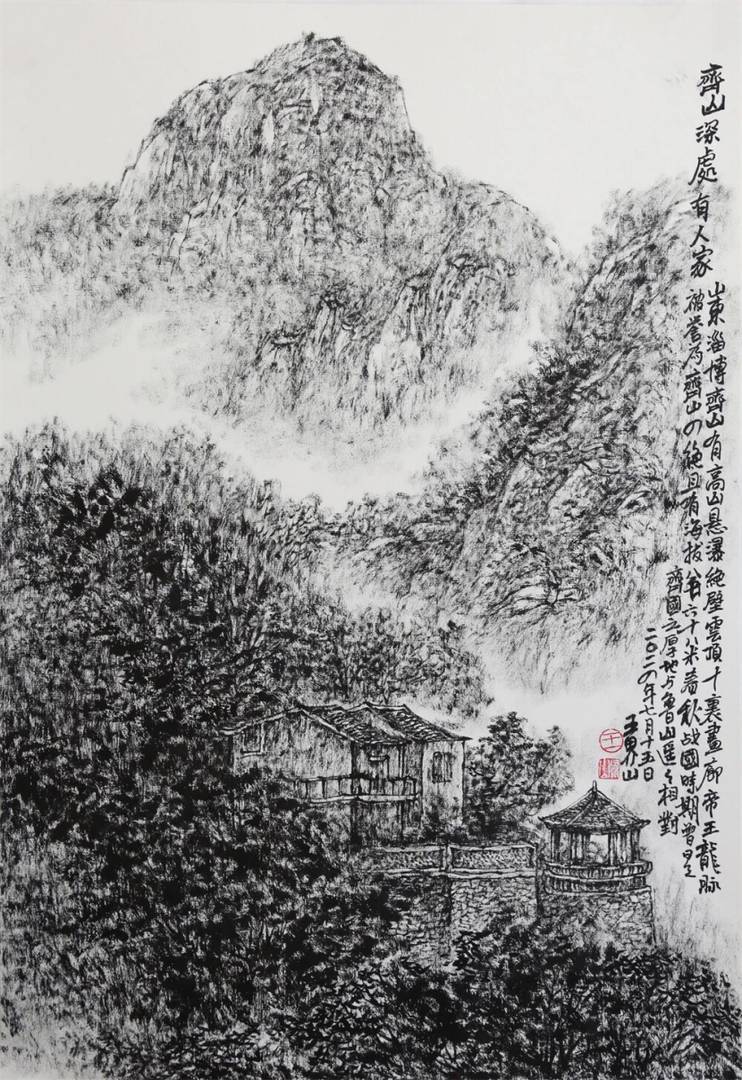 齊山深處有人家
山東淄博齊山有高山悬瀑絶壁雲頂十裏畫廊帝王龍脉
被誉为齊山四絶且有海拔八百六十米春秋战國時期曾是
齊國厚地与魯山遥々相對
二〇二四年七月十五日
王界山
王